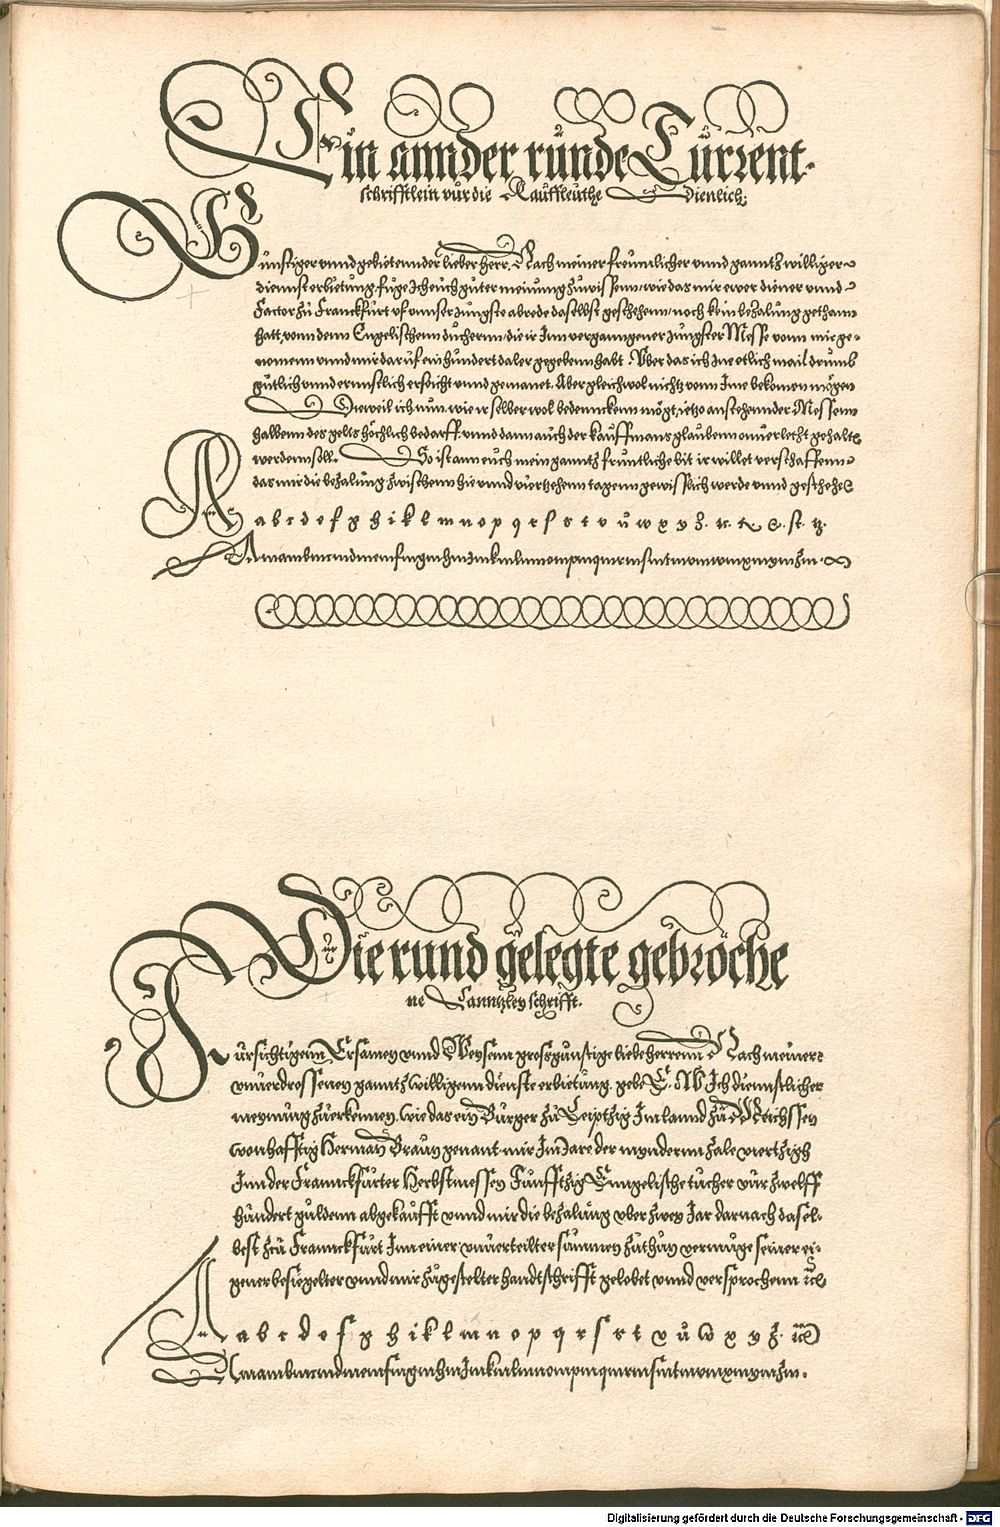 Ein annder runde Current-
schrifftlein vur die Kauffleuthe dienlich
Günstiger vnnd gebietennder lieber herr. Nach meiner freunnlicher vnnd ganntz williger
diennst erbietung, fuge Ich euch guter meinung zuwissenn, wie das mir ewer diener vnnd
Factor zu Franckfurt vf vnnser Jungste abrede daselbst geschehenn, noch kein bezalung gethann
hatt, vonn denn Engelischenn duchernn, die ir Inn verganngener Jungster Messe vonn mir ge-
nomenn vnnd mir daruf ein hundert daler gegebenn habt. Aber das ich Ine etlich mail drumb
gutlich vnnd ernnstlich ersoicht vnnd gemanet. Aber gleichwol nichtz vonn Ime bekomen mogen
Dieweil ich nun, wie ir selber wol bedennckenn mögt, ietzo anstehennder Messenn
halbenn des gelts höchlich bedarff, vnnd dann auch der kauffmans glaubenn onuerletzt gehalten
werdenn soll. So ist ann euch mein ganntz fruntliche bit ir willet verschaffenn
das mir die bezalung zwischenn hie vnnd viertzehenn tagenn gewisslich werde vnnd geschehe
A a b c d e f g h i k l m n o p q r s s t v u w x y z. st. tz.
Amambmcmdmemfmgmhmimkmlmmomnpmqmrmsmtmvmwmxmymzm.
Die rund gelegte gebroche
ne Canntzley schrifft.
Fürsichtigenn Ersamen vnnd Weysenn grossgunstige liebe herrenn. Nach meiner
vnuerdrossenen ganntz willigenn dienste erbietung. gebe E. W. Ich diennstlicher
meynung zuerkennen, wie das ein Burger zu Leipthzig Im lannd zu Meichssen
wonhafftig Herman Braun genant, mir Im Jare der mynndernn zale vierthzigh
Inn der Franncfurter Herbstmessen Funffthzig Enngelische tucher vur zwelff
hundert guldenn abgekaufft vnnd mir die bezalung vber zwey Jar darnach dasel-
best zcu Franncfurt Inn einer vnuerteilter summen zuthun vermuge seiner ei-
gener besigelter vnnd mir zugestelter handtschrifft gelobet vnnd versprochenn
A a b c d e f g h i k l m n o p q r s s t v u w x y z.
Amambmcmdmemfmgmhmimkmlmnmompmqmrmsmtmvmwmxmymzm.
Digitalisierung gefördert durch die Deutsche Forschungsgemeinschaft - DFG